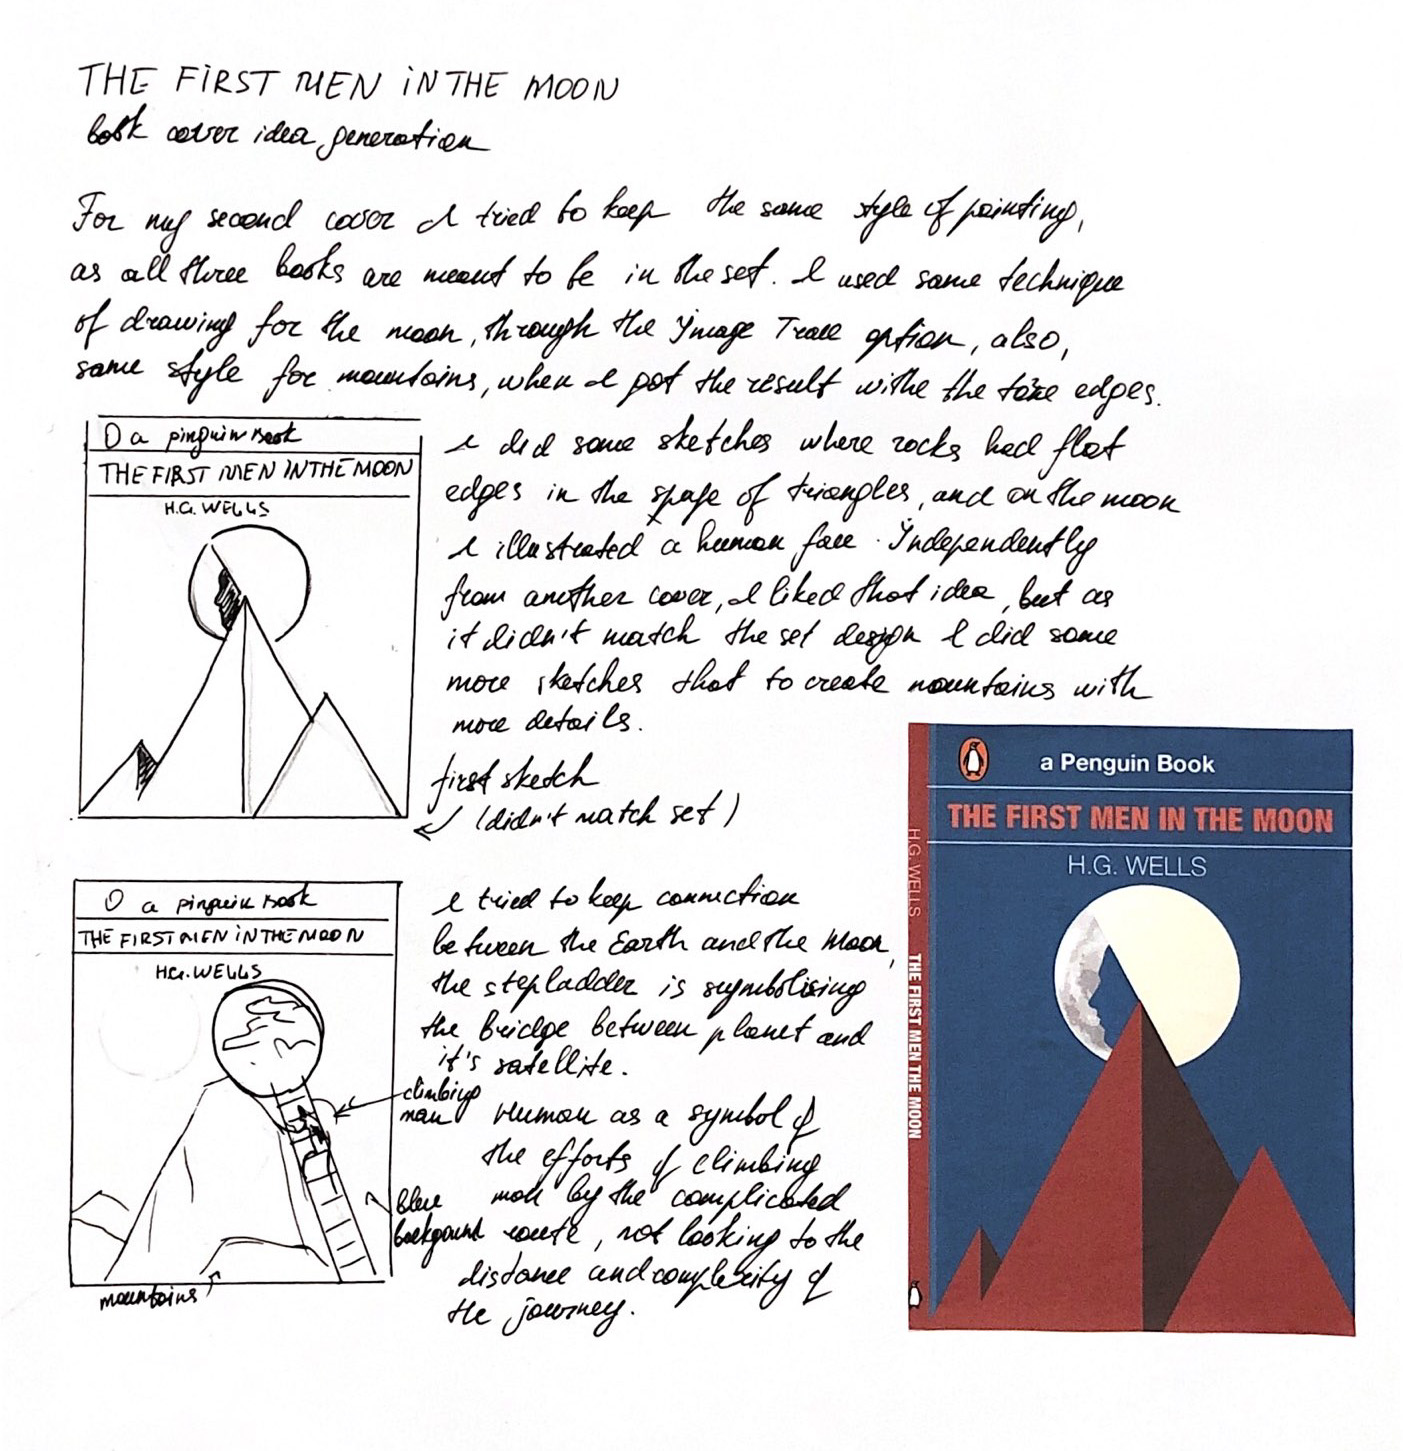 THE FIRST MEN IN THE MOON
book cover idea generation
For my second cover I tried to keep the same style of painting,
as all three books are meant to be in the set. I used same technique
of drawing for the moon, through the Image Trace option, also,
same style for mountains, when I got the result withe the edges.
O a pinguin Book
THE FIRST MEN IN THE MOON
H.G. WELLS
I did some sketches where rocks had flat
edges in the spape of triangles, and on the moon
I illustrated a human face. Independently
from another cover, I liked that idea, but as
it didn't match the set design I did some
more sketches that to create mountains with
more details.
first sketch
(didn't match set)
O a pinguin Book
THE FIRST MEN IN THE MOON
H.G. WELLS
I tried to keep connection
between the Earth and the Moon,
the stepladder is symbolising
the bridge between planet and
it's satellite.
climbing
man
Human as a symbol of
the efforts of climbing
man by the complicated
route, not looking to the
distance and complexity of
the journey.
blue
background
mountains
a Penguin Book
THE FIRST MEN IN THE MOON
H.G. WELLS
H.G. WELLS THE FIRST MEN THE MOON